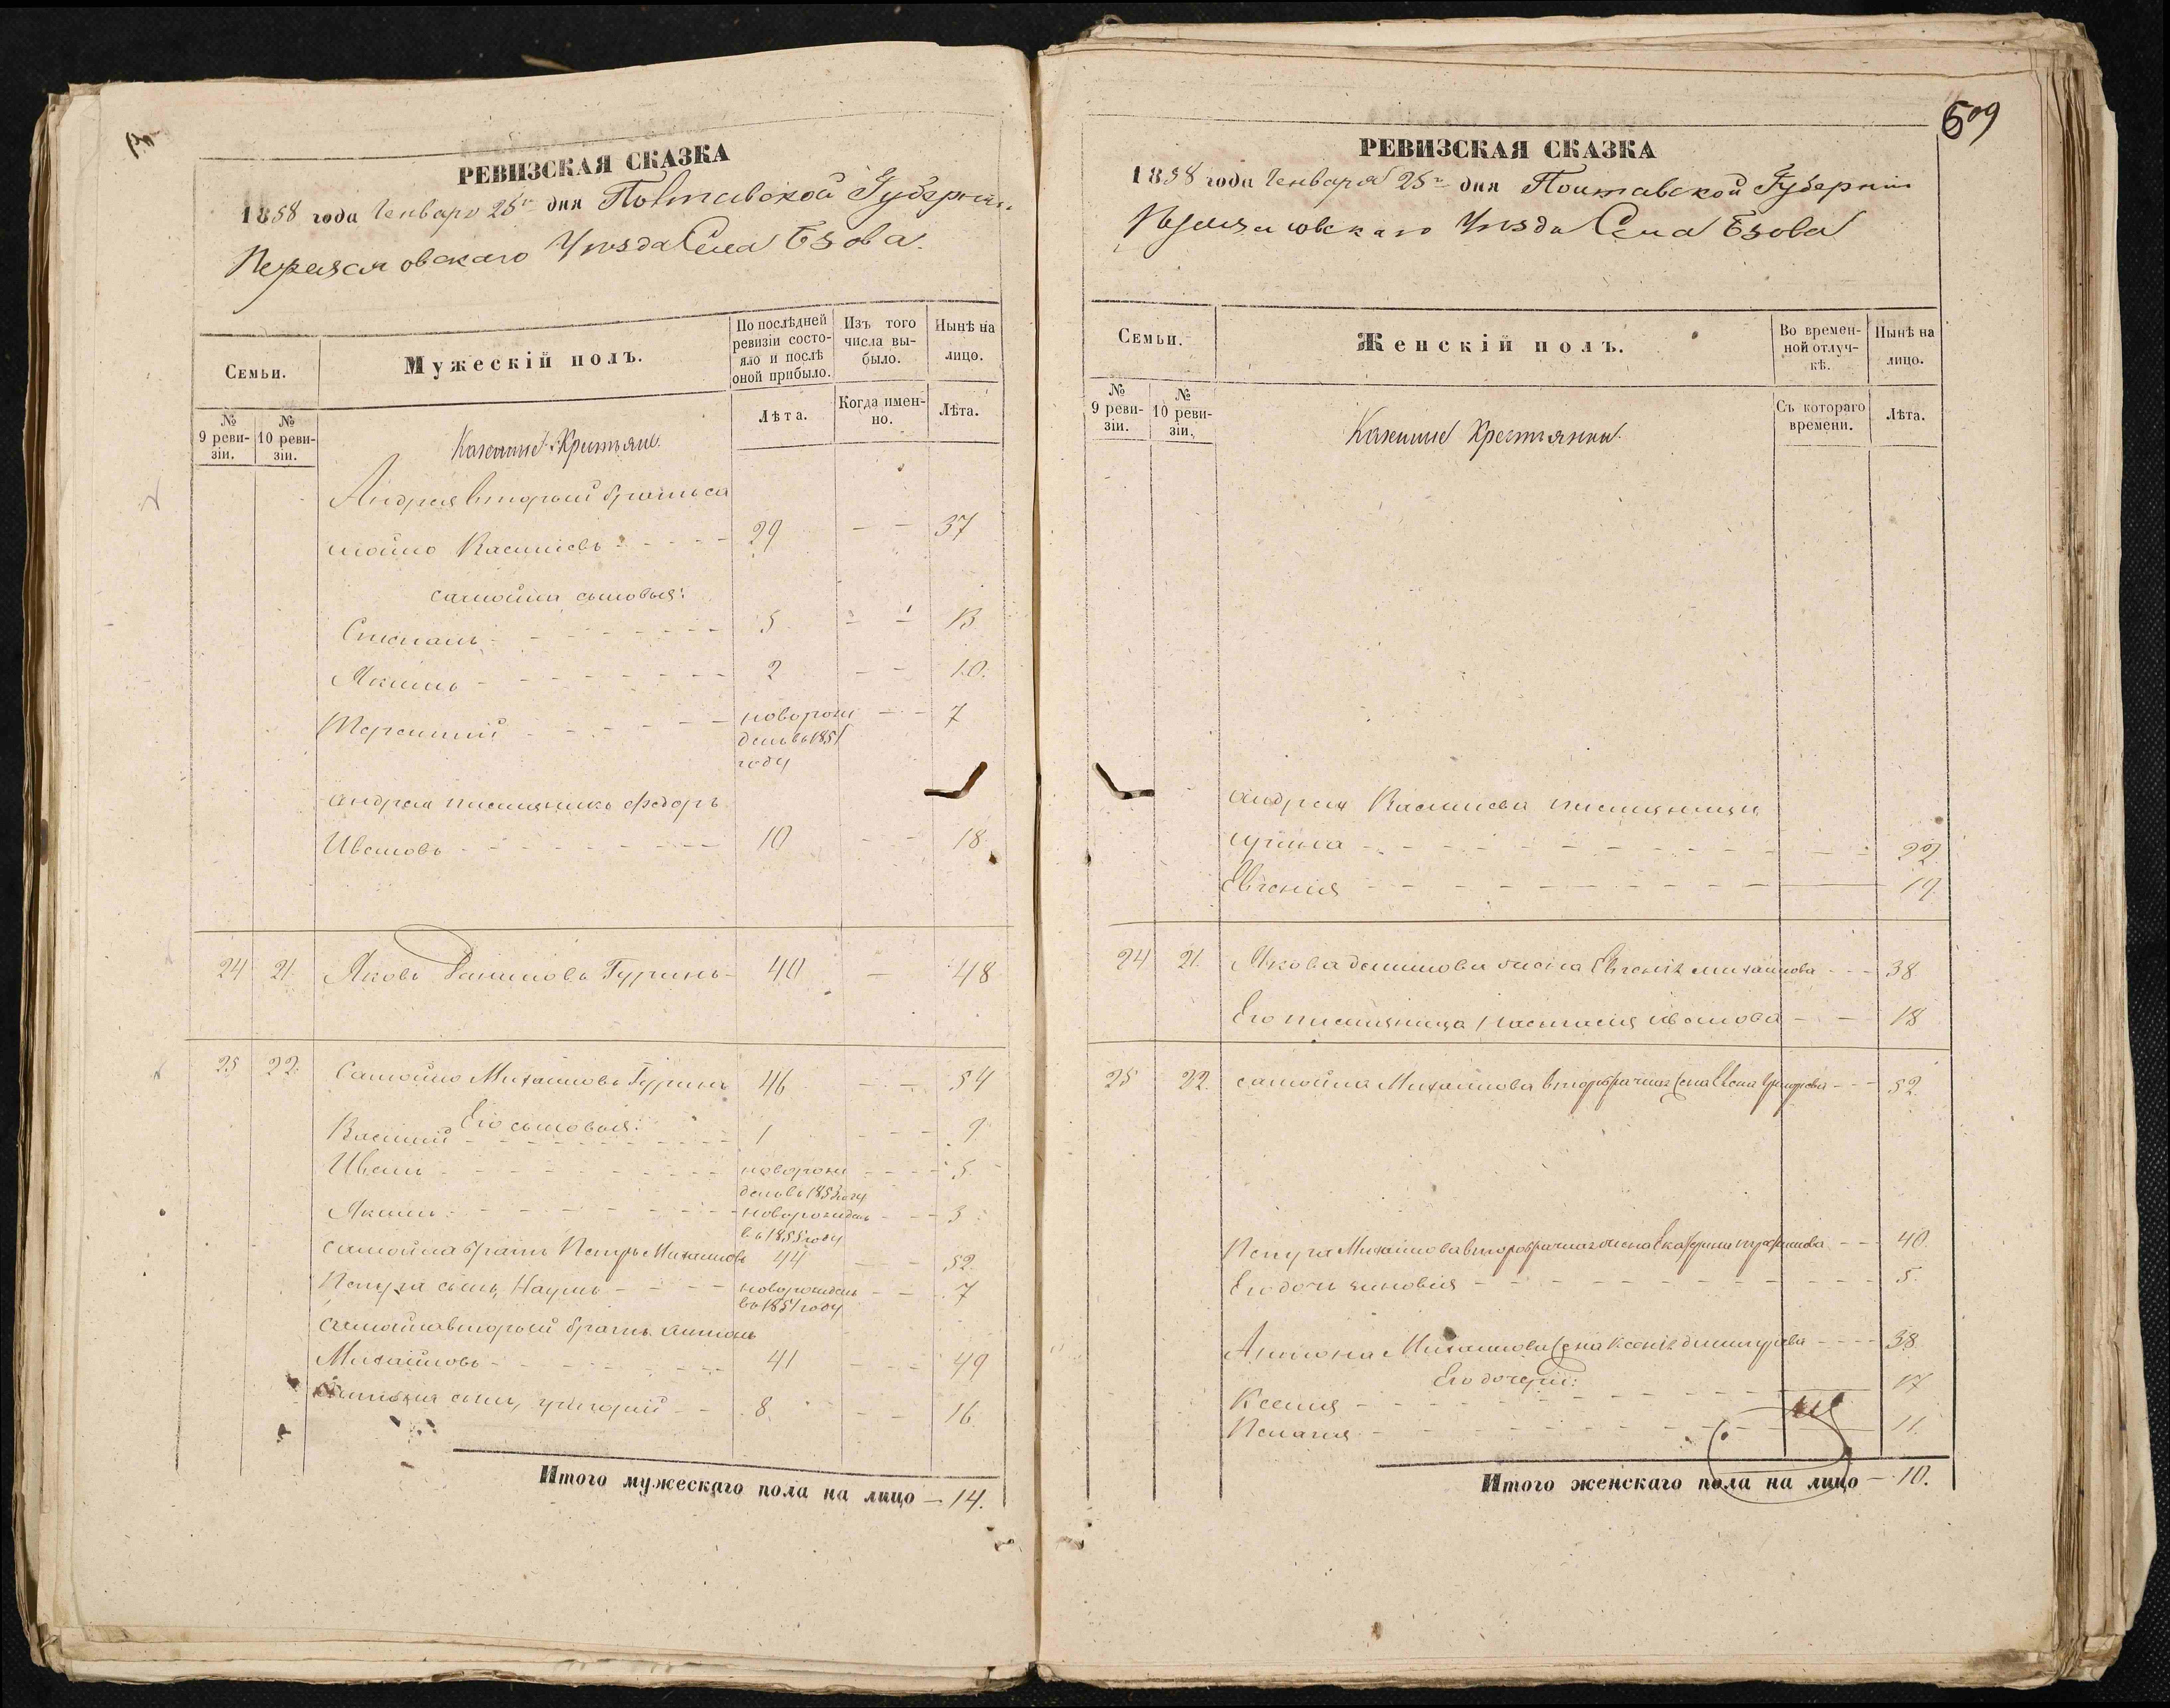 РЕВИЗСКАЯ СКАЗКА
1858 года Генваря 25го дня Полтавской Губерніи
Переяславскаго Уѣзда Села Бзова.
Семьи.
Мужескій полъ.
По послѣдней ревизіи состояло и послѣ оной прибыло.
Изъ того числа выбыло.
Нынѣ на лицо.
№ 9 ревизіи.
№ 10 ревизіи.
Лѣта.
Когда именно.
Лѣта.
Казенные Крестьяне
Андрея второй братъ Са
мойло Василіевъ - - - - 29 - - 37
Самойла сыновья:
Степанъ - - - - - 5 - - 13
Якимъ - - - - - 2 - - 10.
Терентий - - - - - новорож - - 7
денъ въ 1851
году
Андрея племянникъ Федоръ
Ивановъ - - - - - 10 - - 18
24 21. Яковъ Даниловъ Гуринъ - 40 - 48
25 22. Самойло Михайловъ Гуринъ 46 - - 54
Его сыновья:
Василий - - - - - 1 - - 9
Иванъ - - - - - новорож - - 5.
денъ въ 1853 году
Якимъ - - - - - новорожденъ - - 3
въ 1855 году
Самойла братъ Петръ Михайловъ 44 - - 52.
Петра сынъ Наумъ - - - новорожденъ - - 7
въ 1851 году
Самойла второй братъ Антонъ
Михайловъ - - - - - 41 - - 49
Антона сынъ, Григорий - - 8. - - 16.
Итого мужескаго пола на лицо — 14.
609
РЕВИЗСКАЯ СКАЗКА
1858 года Генваря 25го дня Полтавской Губерніи
Переяславскаго Уѣзда Села Бзова
Семьи.
Женскій полъ.
Во временной отлучкѣ.
Нынѣ на лицо.
№ 9 ревизіи.
№ 10 ревизіи.
Съ котораго времени.
Лѣта.
Казенные Крестьянки.
Андрея Василиева племянницы
Ирина - - - - - 22.
Евгения - - - - - 19.
24 21. Якова Данилова жена Евгения Михайлова - - - 38
Его племянница Настасия Иванова - - 18
25 22. Самойла Михайлова второбрачная жена Елена Григорьева - - - 52.
Петра Михайлова второбрачная жена Екатерина Трофимова - - - 40.
Его дочь Зиновия - - - - - 5.
Антона Михайлова жена Ксения Дмитриева - - - - 38.
Его дочери:
Ксения - - - - - 17
Пелагия - - - - - 11.
Итого женскаго пола на лицо — 10.